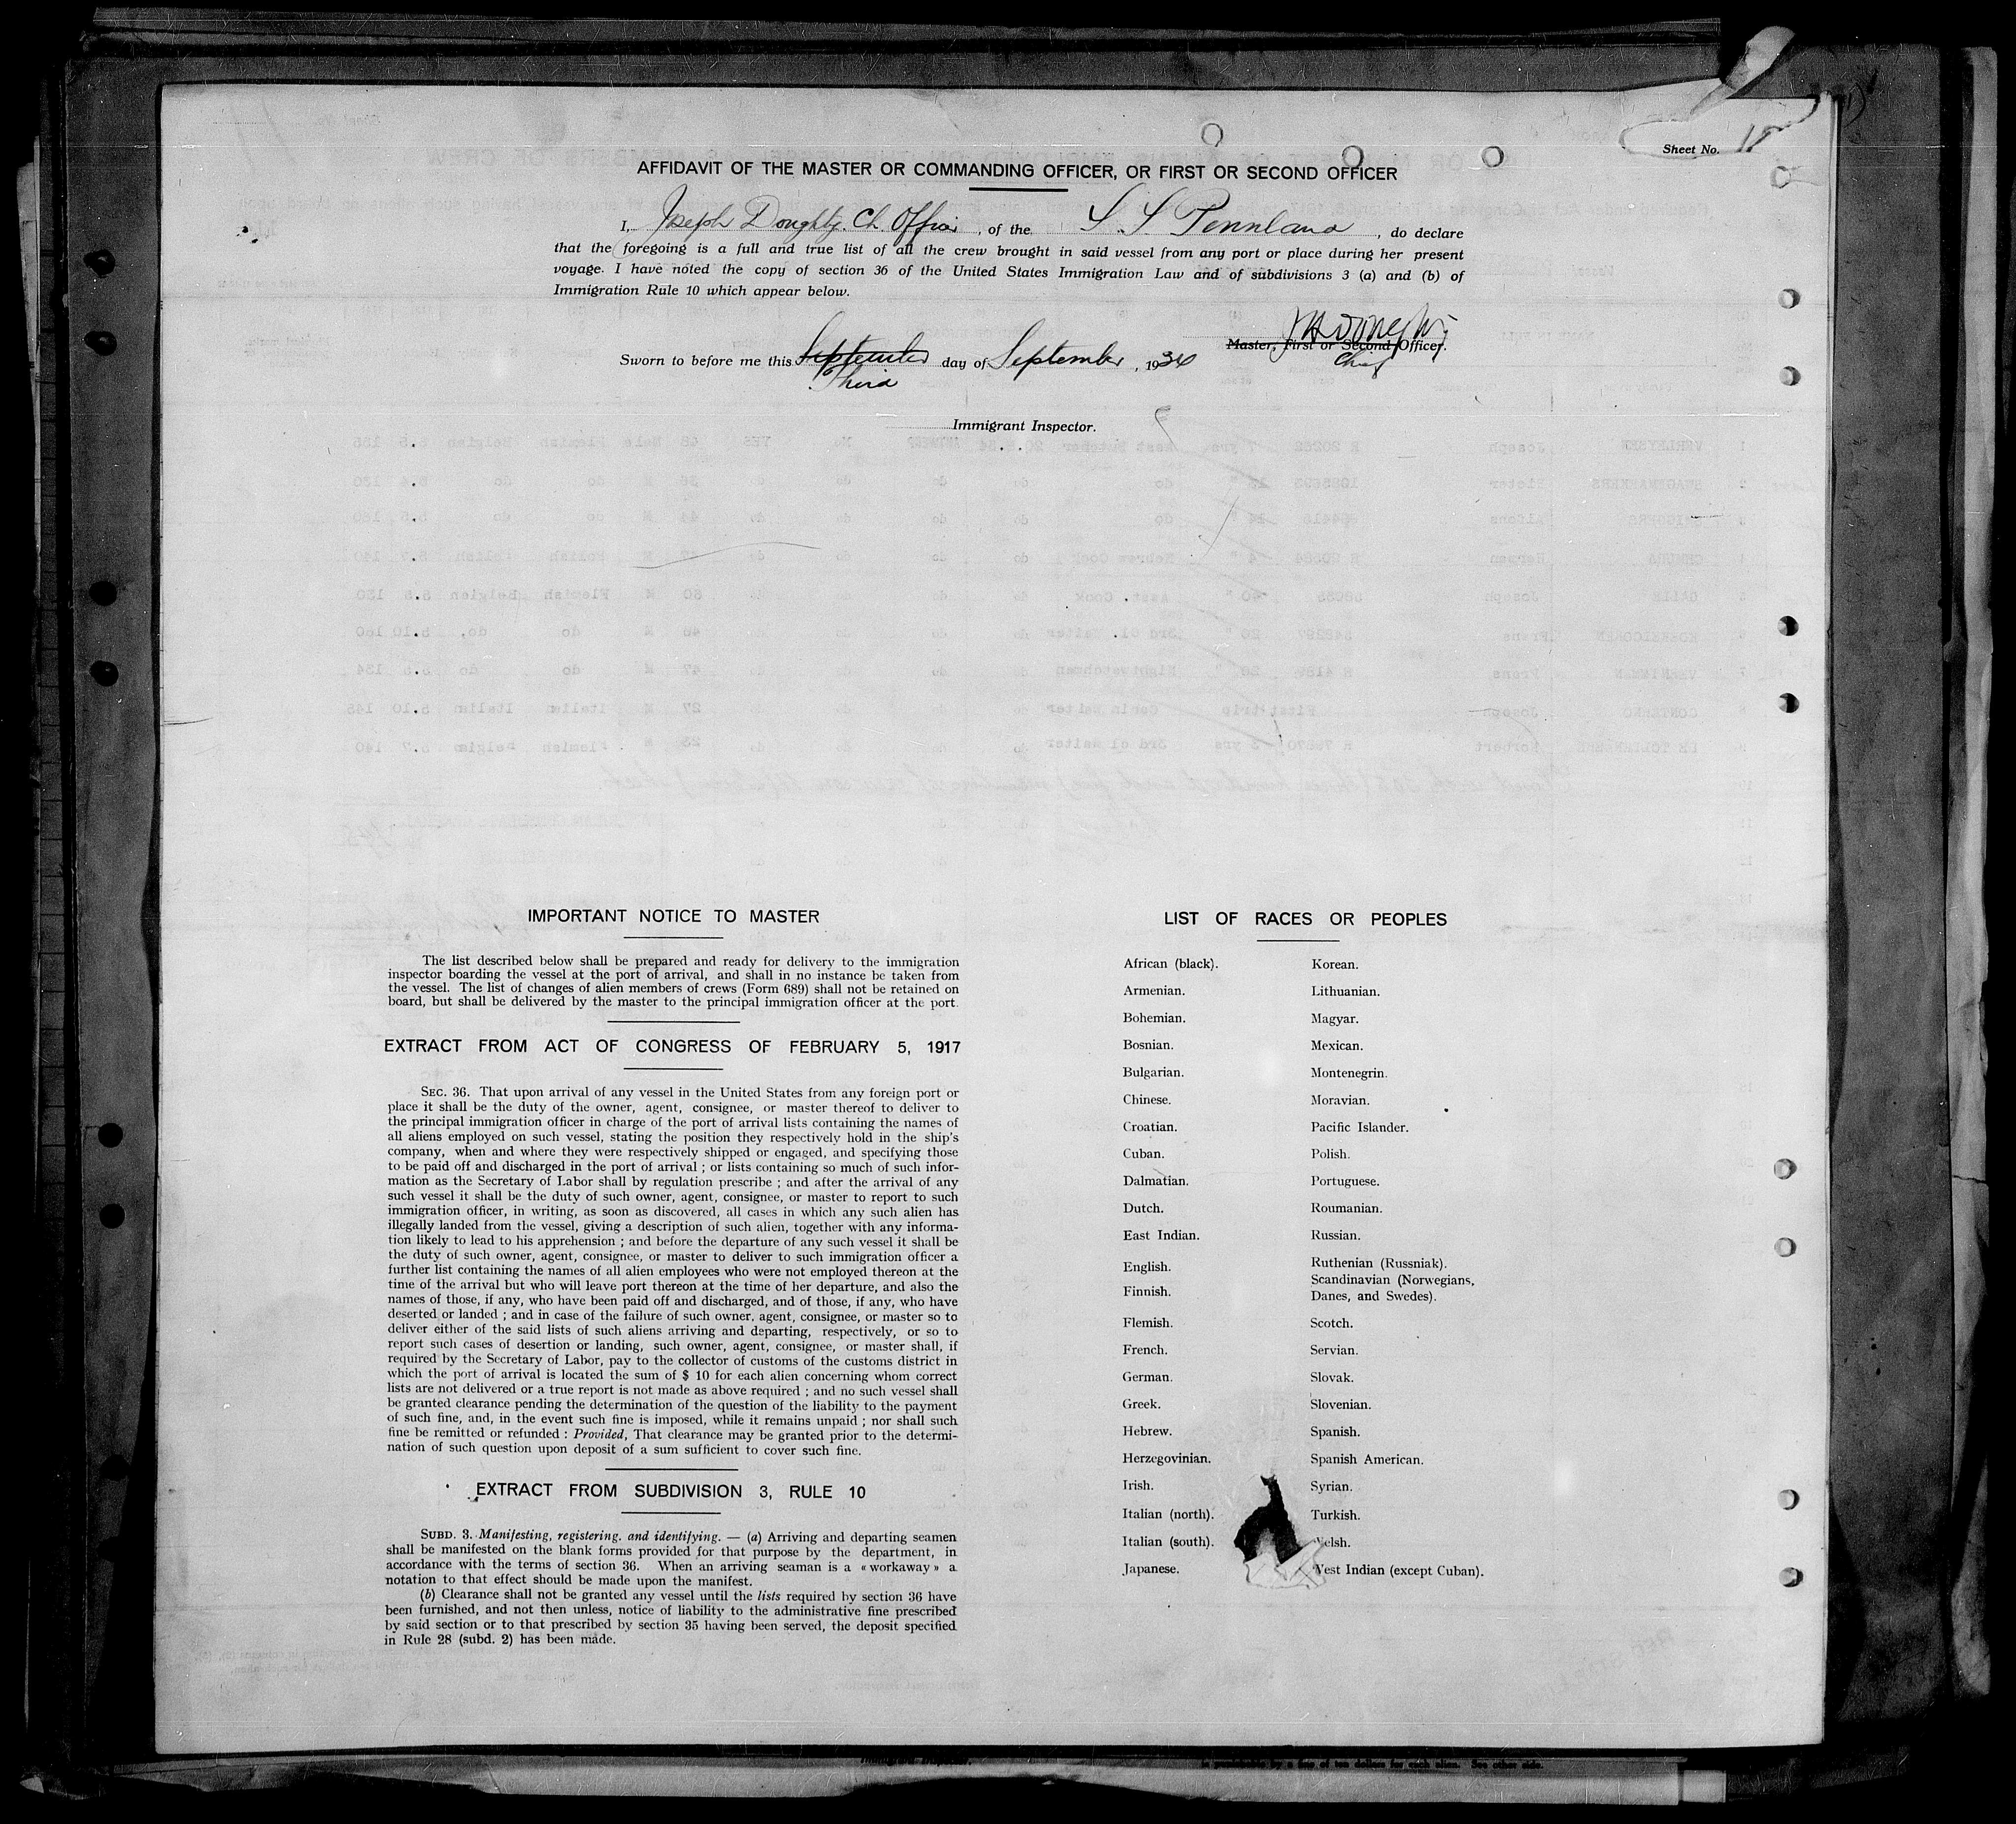 Sheet No.
AFFIDAVIT OF THE MASTER OR COMMANDING OFFICER, OR FIRST OR SECOND OFFICER
I, Joseph Doughty. Ch. Officer, of the S S Pennland, do declare
that the foregoing is a full and true list of all the crew brought in said vessel from any port or place during her present
voyage. I have noted the copy of section 36 of the United States Immigration Law and of subdivisions 3 (a) and (b) of
Immigration Rule 10 which appear below.
Master, First or Second Officer.
Chief
Sworn to before me this September day of September, 1934
Third
Immigrant Inspector.
IMPORTANT NOTICE TO MASTER
The list described below shall be prepared and ready for delivery to the immigration
inspector boarding the vessel at the port of arrival, and shall in no instance be taken from
the vessel. The list of changes of alien members of crews (Form 689) shall not be retained on
board, but shall be delivered by the master to the principal immigration officer at the port.
EXTRACT FROM ACT OF CONGRESS OF FEBRUARY 5, 1917
SEC. 36. That upon arrival of any vessel in the United States from any foreign port or
place it shall be the duty of the owner, agent, consignee, or master thereof to deliver to
the principal immigration officer in charge of the port of arrival lists containing the names of
all aliens employed on such vessel, stating the position they respectively hold in the ship's
company, when and where they were respectively shipped or engaged, and specifying those
to be paid off and discharged in the port of arrival ; or lists containing so much of such infor-
mation as the Secretary of Labor shall by regulation prescribe ; and after the arrival of any
such vessel it shall be the duty of such owner, agent, consignee, or master to report to such
immigration officer, in writing, as soon as discovered, all cases in which any such alien has
illegally landed from the vessel, giving a description of such alien, together with any informa-
tion likely to lead to his apprehension ; and before the departure of any such vessel it shall be
the duty of such owner, agent, consignee, or master to deliver to such immigration officer a
further list containing the names of all alien employees who were not employed thereon at the
time of the arrival but who will leave port thereon at the time of her departure, and also the
names of those, if any, who have been paid off and discharged, and of those, if any, who have
deserted or landed ; and in case of the failure of such owner, agent, consignee, or master so to
deliver either of the said lists of such aliens arriving and departing, respectively, or so to
report such cases of desertion or landing, such owner, agent, consignee, or master shall, if
required by the Secretary of Labor, pay to the collector of customs of the customs district in
which the port of arrival is located the sum of $ 10 for each alien concerning whom correct
lists are not delivered or a true report is not made as above required ; and no such vessel shall
be granted clearance pending the determination of the question of the liability to the payment
of such fine, and, in the event such fine is imposed, while it remains unpaid ; nor shall such
fine be remitted or refunded : Provided, That clearance may be granted prior to the determi-
nation of such question upon deposit of a sum sufficient to cover such fine.
EXTRACT FROM SUBDIVISION 3, RULE 10
SUBD. 3. Manifesting, registering, and identifying. — (a) Arriving and departing seamen
shall be manifested on the blank forms provided for that purpose by the department, in
accordance with the terms of section 36. When an arriving seaman is a « workaway » a
notation to that effect should be made upon the manifest.
(b) Clearance shall not be granted any vessel until the lists required by section 36 have
been furnished, and not then unless, notice of liability to the administrative fine prescribed
by said section or to that prescribed by section 35 having been served, the deposit specified
in Rule 28 (subd. 2) has been made.
LIST OF RACES OR PEOPLES
African (black).
Armenian.
Bohemian.
Bosnian.
Bulgarian.
Chinese.
Croatian.
Cuban.
Dalmatian.
Dutch.
East Indian.
English.
Finnish.
Flemish.
French.
German.
Greek.
Hebrew.
Herzegovinian.
Irish.
Italian (north).
Italian (south).
Japanese.
Korean.
Lithuanian.
Magyar.
Mexican.
Montenegrin.
Moravian.
Pacific Islander.
Polish.
Portuguese.
Roumanian.
Russian.
Ruthenian (Russniak).
Scandinavian (Norwegians,
Danes, and Swedes).
Scotch.
Servian.
Slovak.
Slovenian.
Spanish.
Spanish American.
Syrian.
Turkish.
Welsh.
West Indian (except Cuban).